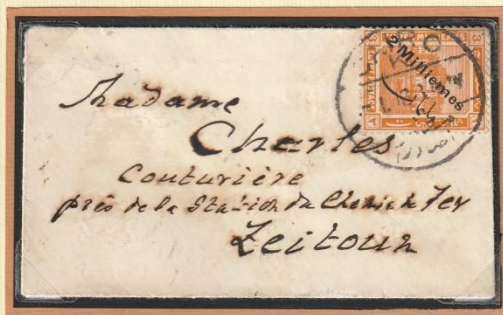 2 Milliemes
Madame
Charles
Couturière
près de la Station du Chemin de Fer
Zeitoun